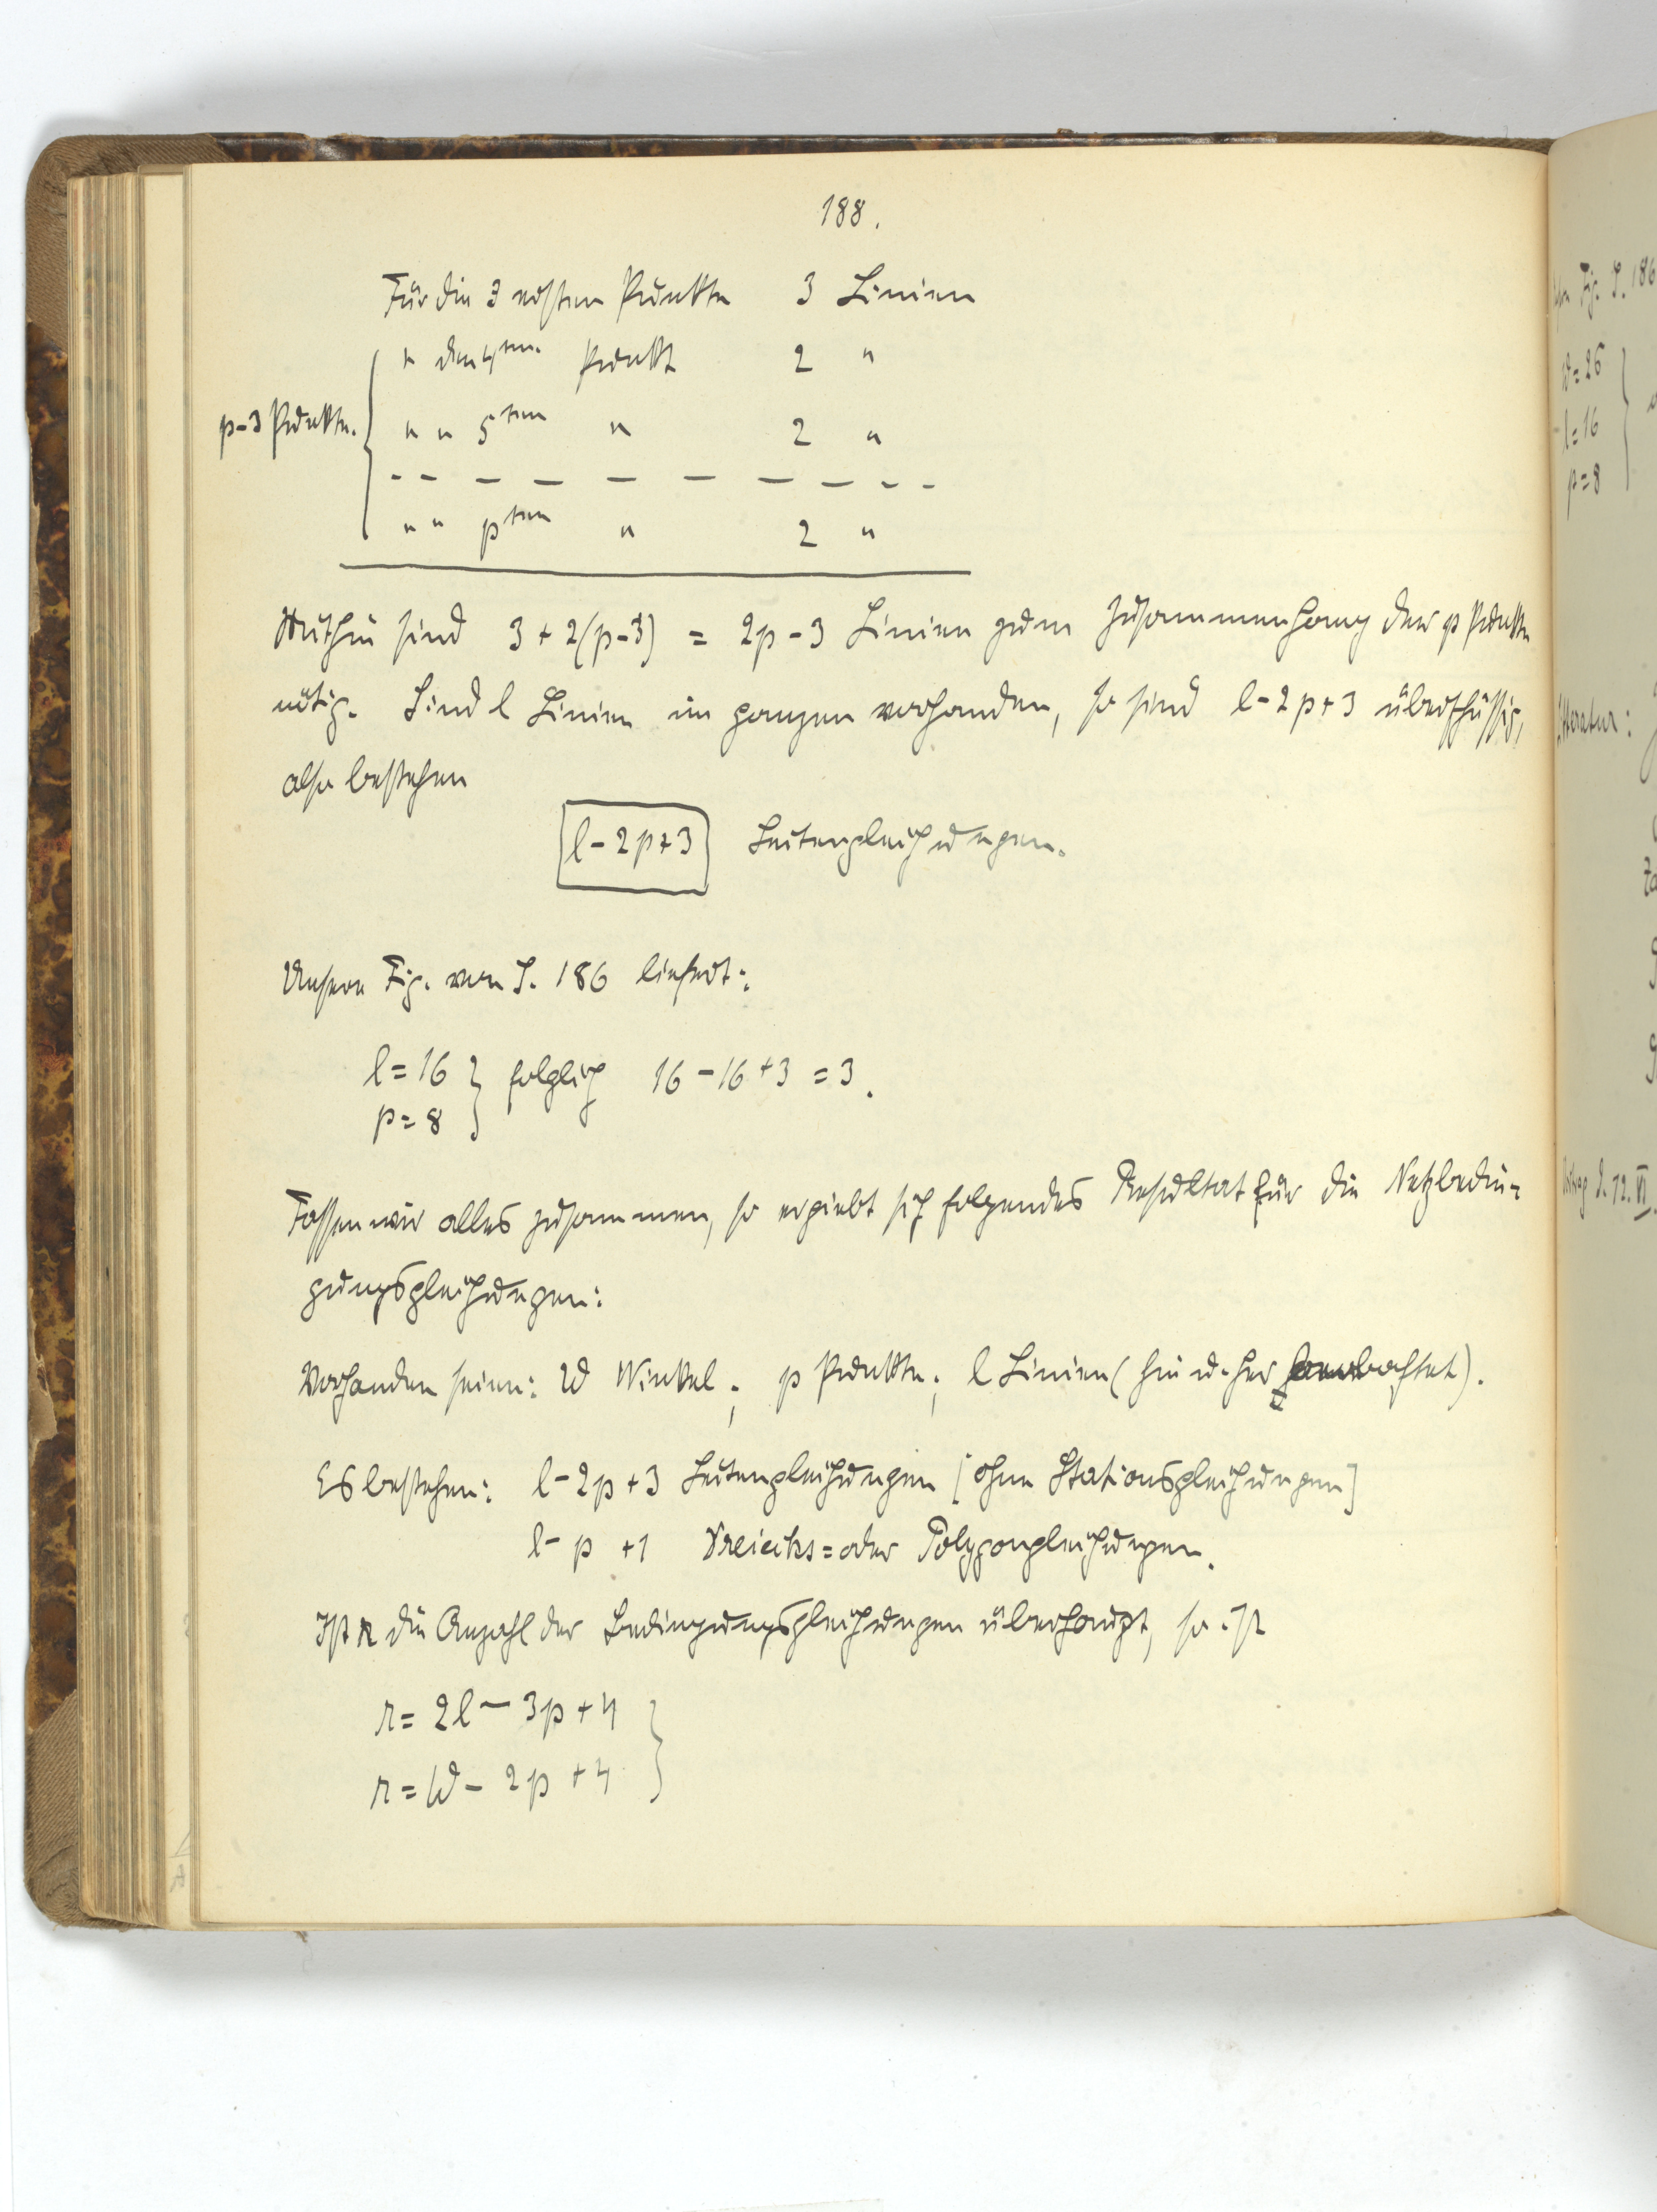 188.
Für die 3 ersten Punkte 3 Linien
" den 4ten Punkt 2 "
p-3 Punkte. " " 5ten " 2 "
- - - - - - - - - -
" " pten " 2 "
Mithin sind 3 + 2(p-3) = 2p - 3 Linien zum Zusammenhang der p Punkte
nötig. Sind l Linien im ganzen vorhanden, so sind l-2p+3 überschüssig,
also bestehen
l-2p+3 Seitengleichungen.
Unsere Fig. von S. 186 liefert:
l=16
p=8 } folglich 16-16+3 = 3.
Fassen wir alles zusammen, so ergiebt sich folgendes Resultat für die Netzbedin-
gungsgleichungen:
Vorhanden seien: W Winkel; p Punkte; l Linien (hin u. her beobachtet).
Es bestehen: l-2p+3 Seitengleichungen [ohne Stationsgleichungen]
l-p+1 Dreiecks= oder Polygongleichungen.
Ist r die Anzahl der Bedingungsgleichungen überhaupt, so ist
r = 2l - 3p + 4
r = W - 2p + 4 }
Fig. S. 186
W=26
l=16
p=8